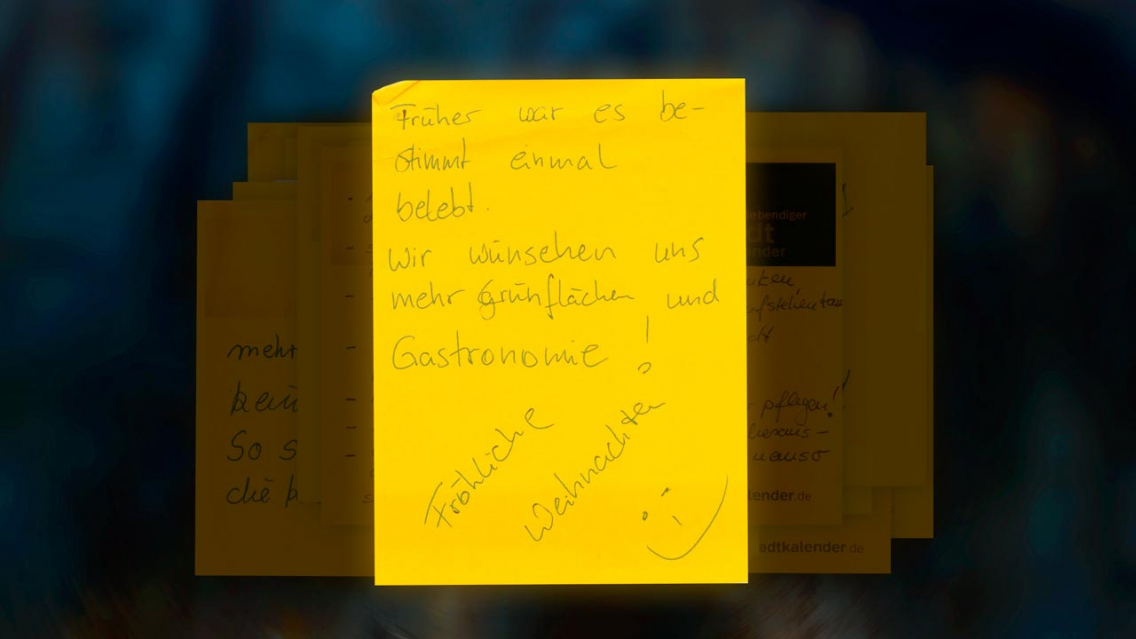 Früher war es be-
stimmt einmal
belebt.
Wir wünschen uns
mehr Grünflächen und
Gastronomie!
Fröhliche
Weihnachten
:-)
mehr
So s
die k
ebendiger
dt
nder
pflegen!
lender.de
adtkalender.de